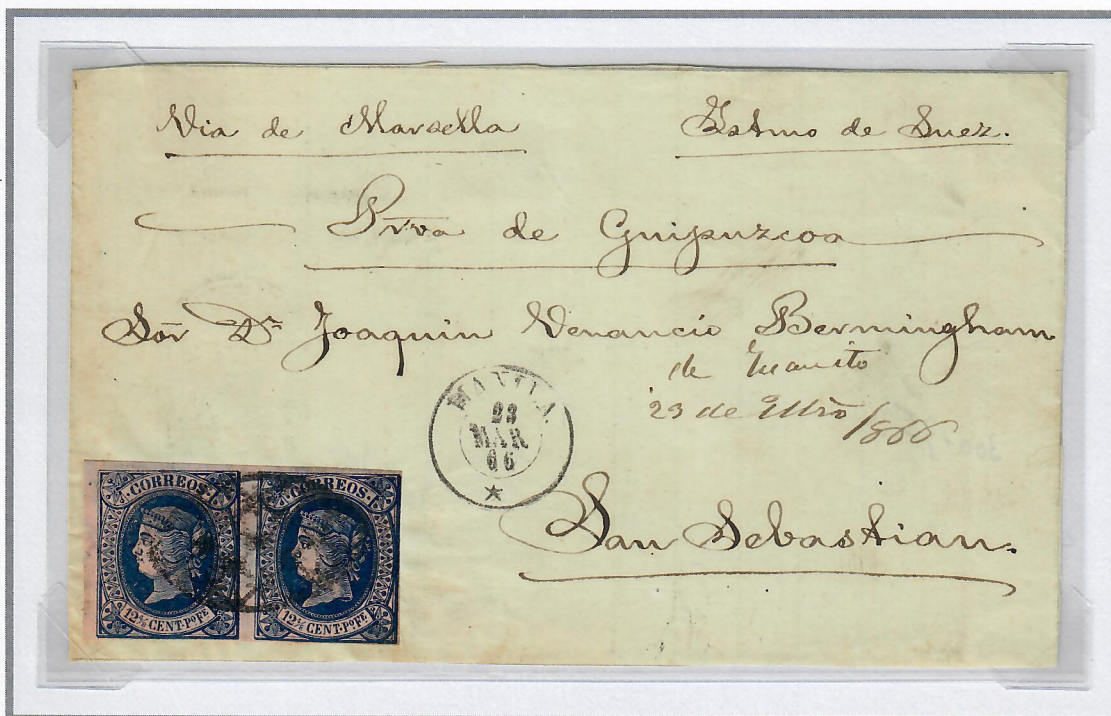 Via de Marsella
Istmo de Suez.
Prva de Guipuzcoa
Sor Dn Joaquin Venancio Bermingham
de
23 de /866
MANILA
23
MAR
66
San Sebastian.
CORREOS
CORREOS
12 4/8 CENT. Po Fe
12 4/8 CENT. Po Fe